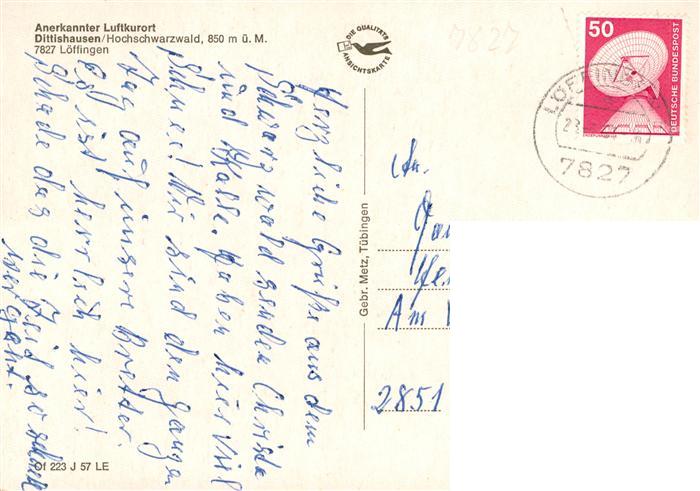 Anerkannter Luftkurort
Dittishausen/Hochschwarzwald, 850 m ü. M.
7827 Löffingen
DIE QUALITÄTS
ANSICHTSKARTE
7827
50
DEUTSCHE BUNDESPOST
LÖFFINGEN
7827
Herzliche Grüße aus dem
Schwarzwald senden Christa
und Kalle. Haben hier viel
Schnee! Wir sind den ganzen
Tag auf unsere Bretter.
Es ist herrlich hier!
Schade das die Zeid so schnell
vergaht.
Gebr. Metz, Tübingen
An
Am
2851
Of 223 J 57 LE